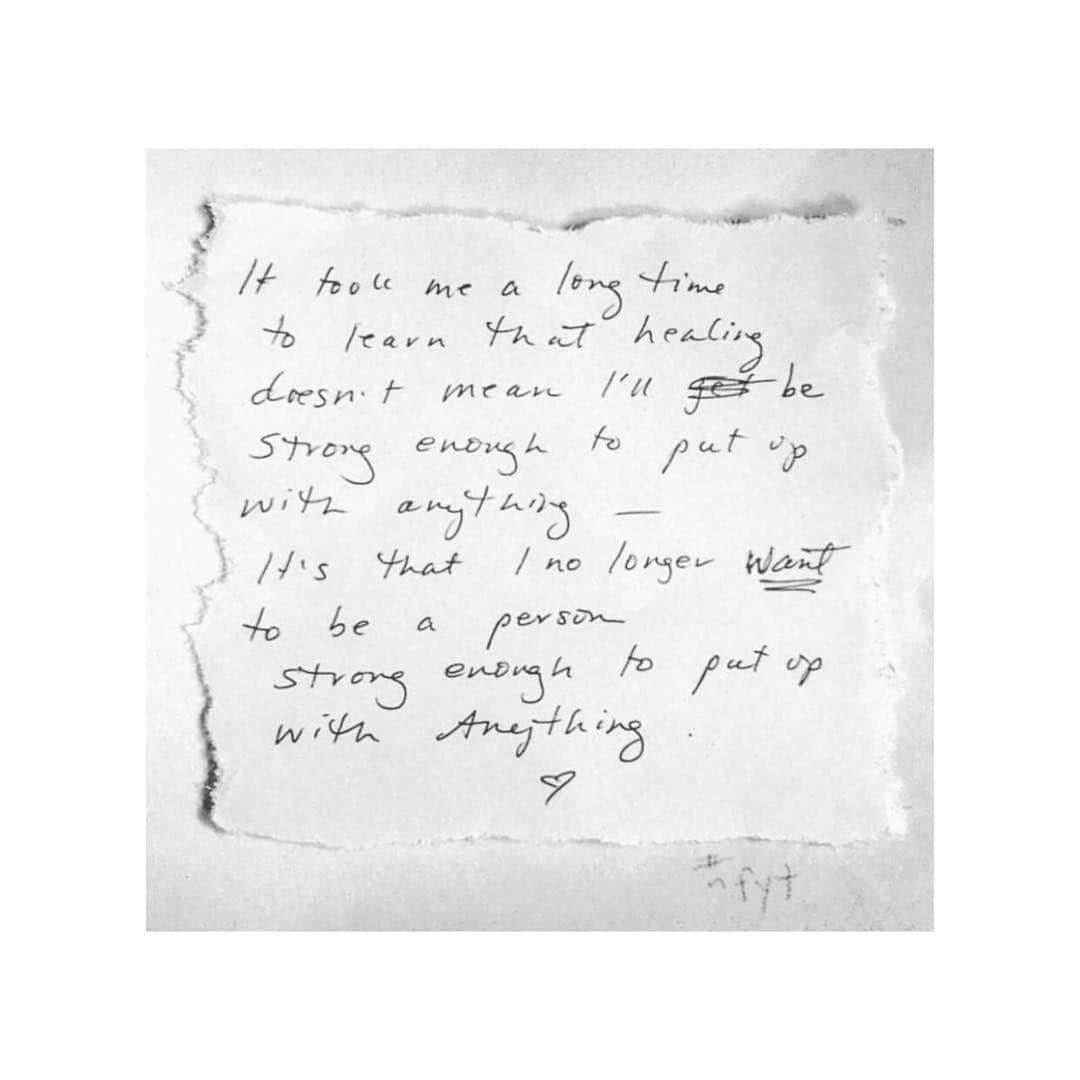 It took me a long time
to learn that healing
doesn't mean I'll get be
strong enough to put up
with anything —
It's that I no longer want
to be a person
strong enough to put up
with Anything.
♡
#nfyt